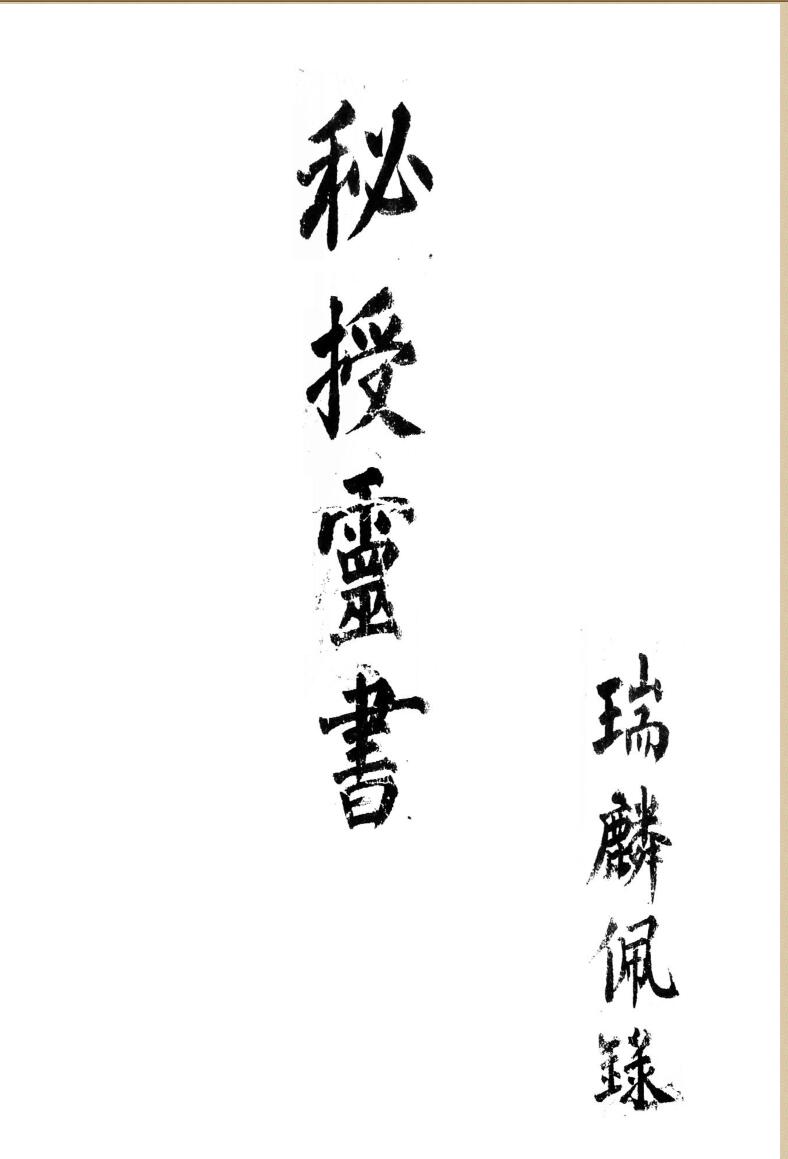 瑞麟佩錄
秘授靈書